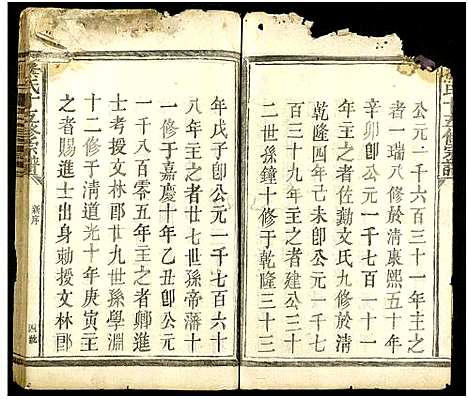 公元一千六百三十一年主之
者一瑞八修於清康熙五十年
辛卯即公元一千七百一十一
年主之者佐勛文氏九修於清
乾隆四年己未即公元一千七
百三十九年主之者建公二十
二世孫鐘十修于乾隆三十三
年戊子卽公元一千七百六十
八年主之者廿七世孫帝藩十
一修于嘉慶十年乙丑卽公元
一千八百零五年主之者卿進
士考授文林郎廿九世孫學淵
十二修于清道光十年庚寅主
之者賜進士出身勅授文林郎
氏十五修宗譜
新序
四號
氏十五修宗譜